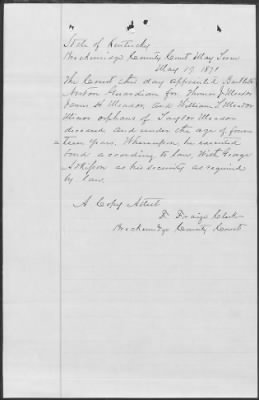 State of Kentucky
Breckenridge County Court May Term
May 19 1871
The Court this day appointed Bartlett
Norton Guardian for Thomas J Meador
James H Meador, and William T Meador
Minor orphans of Taylor Meador
deceased and under the age of four
teen years. Whereupon he executed
bond according to law, With George
Atkisson as his security as required
by law.
A Copy Attest
D. Craige Clerk
Breckenridge County Court